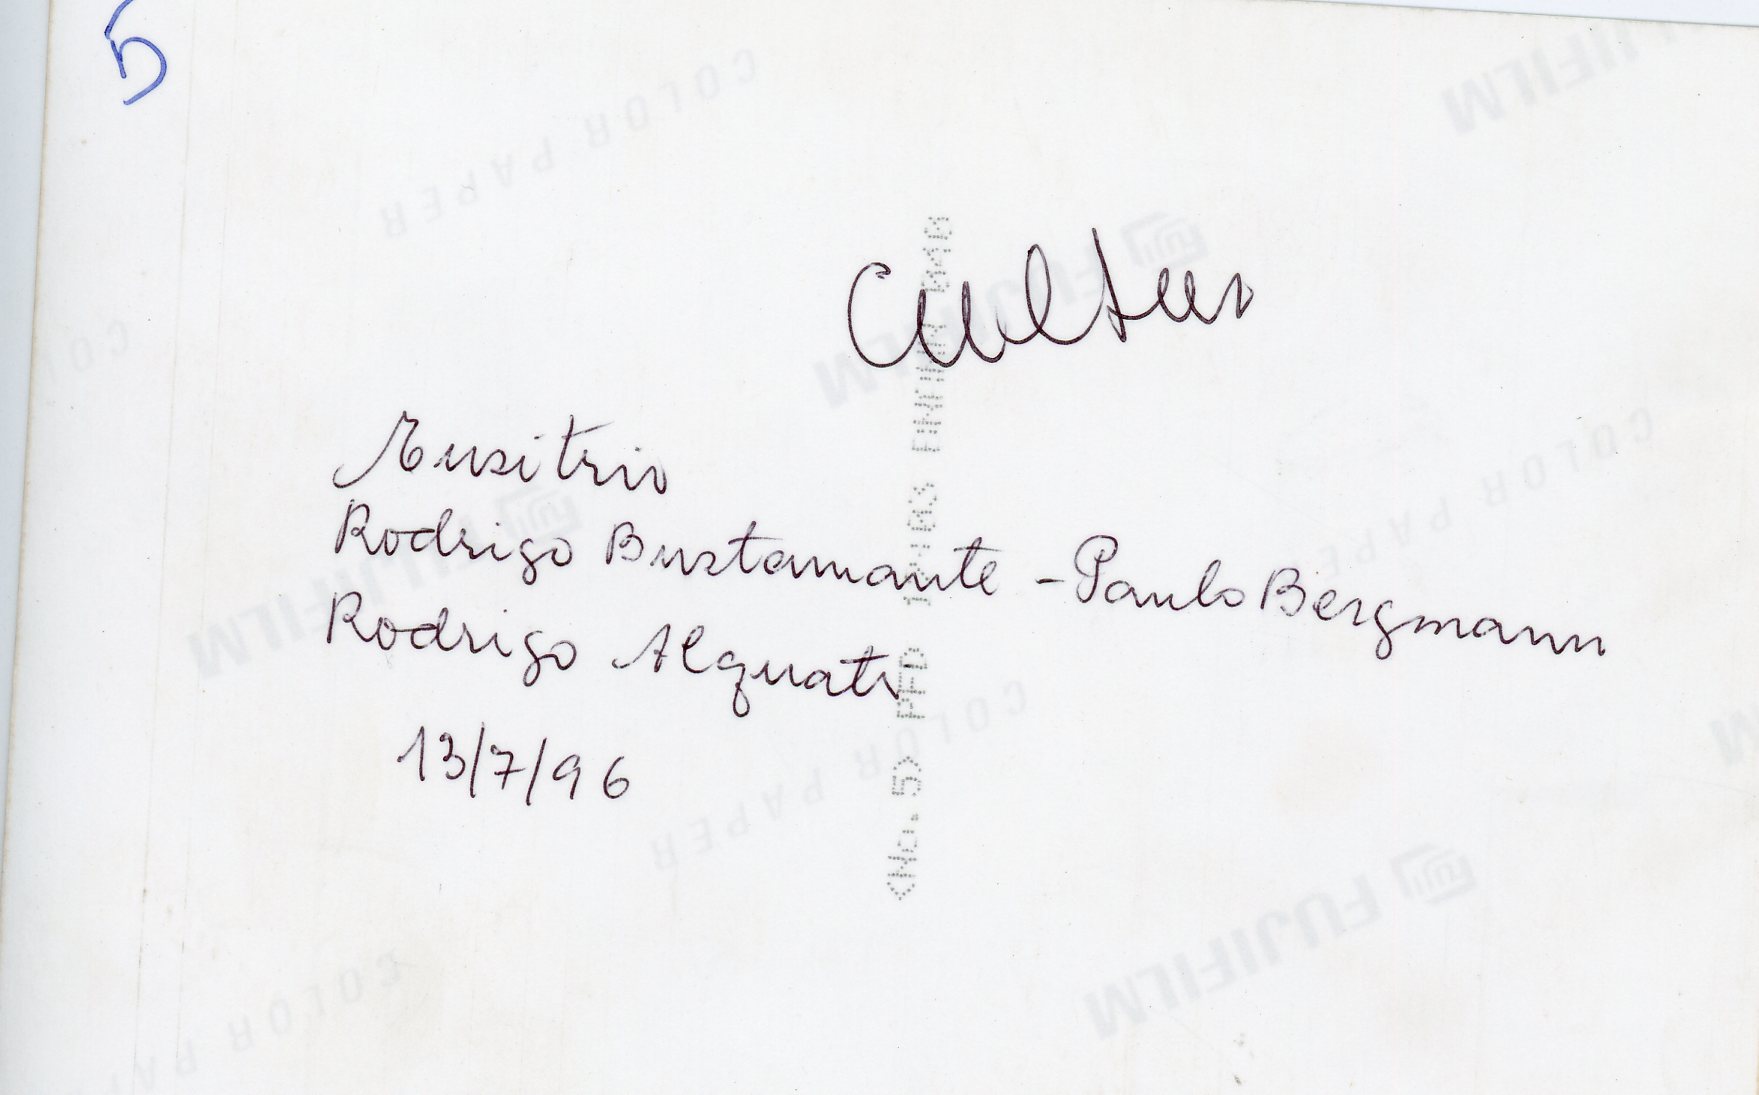 5
Cultur
Musitrio
Rodrigo Bustamante - Paulo Bergmann
Rodrigo Alquati
13/7/96
<No. 5> PFD
FUJIFILM
COLOR PAPER
FUJIFILM
COLOR PAPER
FUJIFILM
COLOR PAPER
FUJIFILM
COLOR PAPER